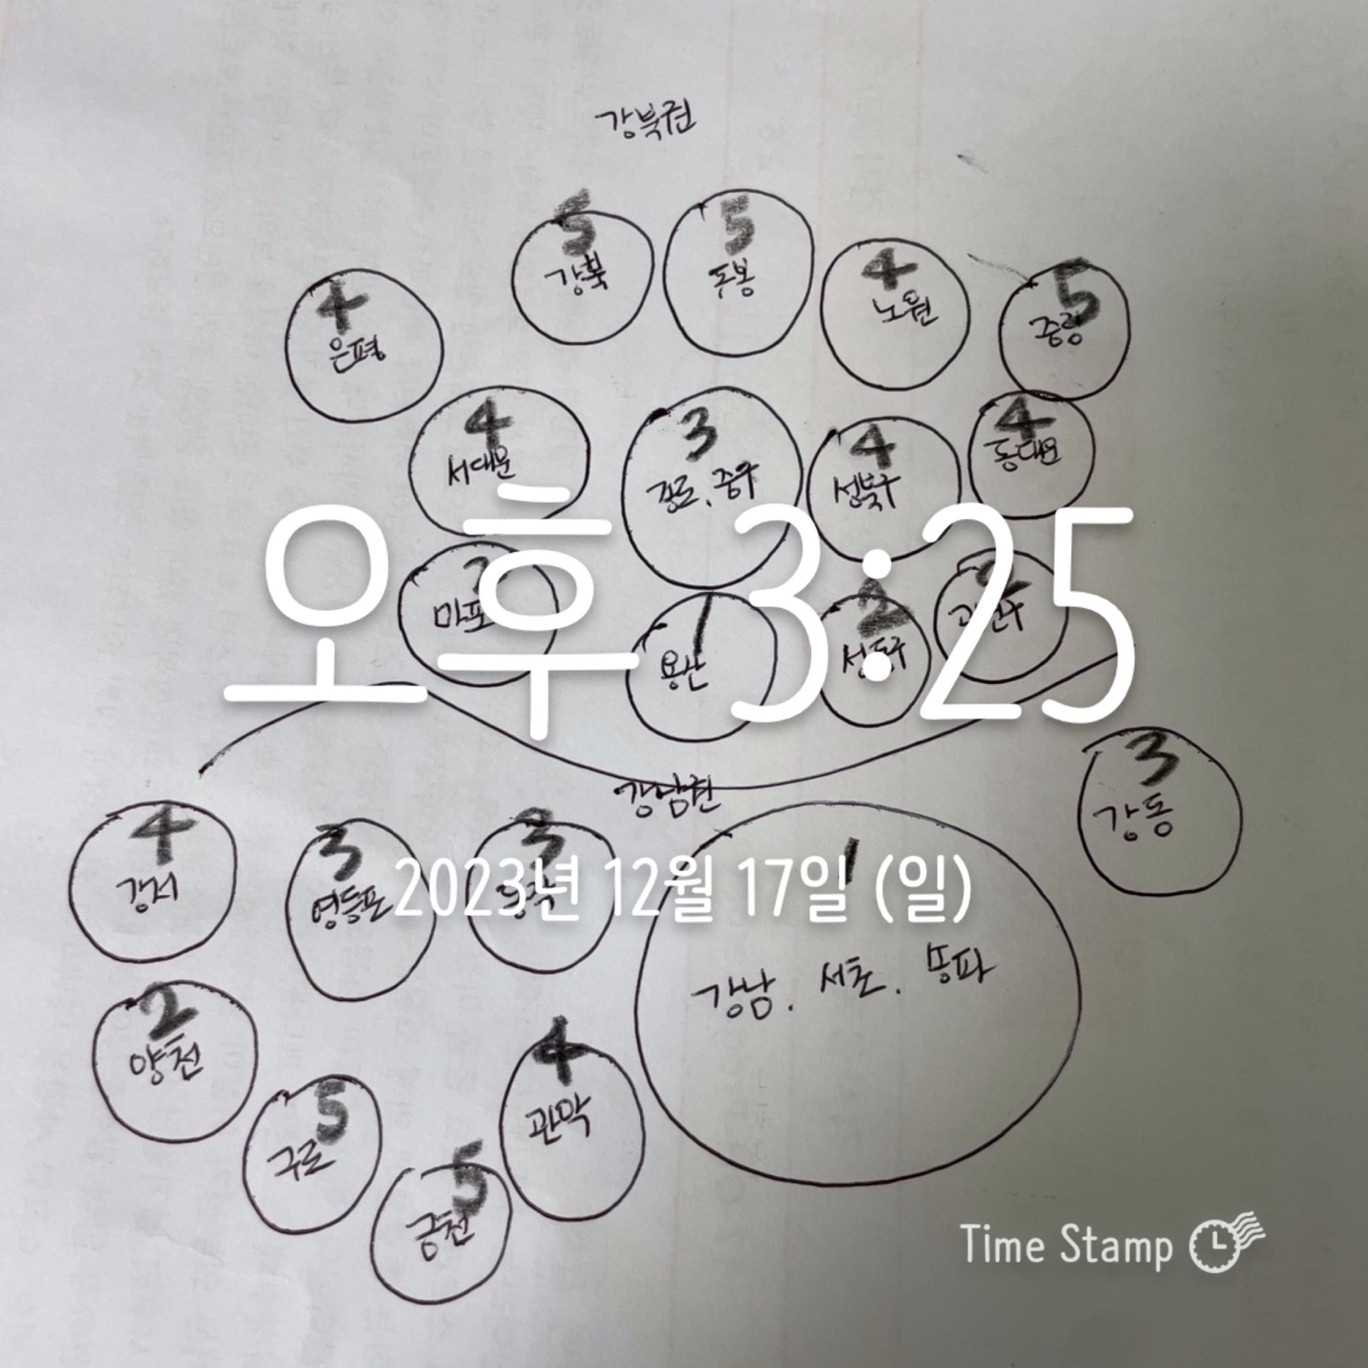 강북권
5
강북
5
도봉
4
노원
5
중랑
4
은평
4
서대문
3
종로, 중구
4
성북구
4
동대문
마포
1
용산
2
성동구
오후 3:25
강남권
3
강동
4
강서
3
영등포
3
1
강남, 서초, 송파
2023년 12월 17일 (일)
2
양천
5
구로
5
금천
4
관악
Time Stamp